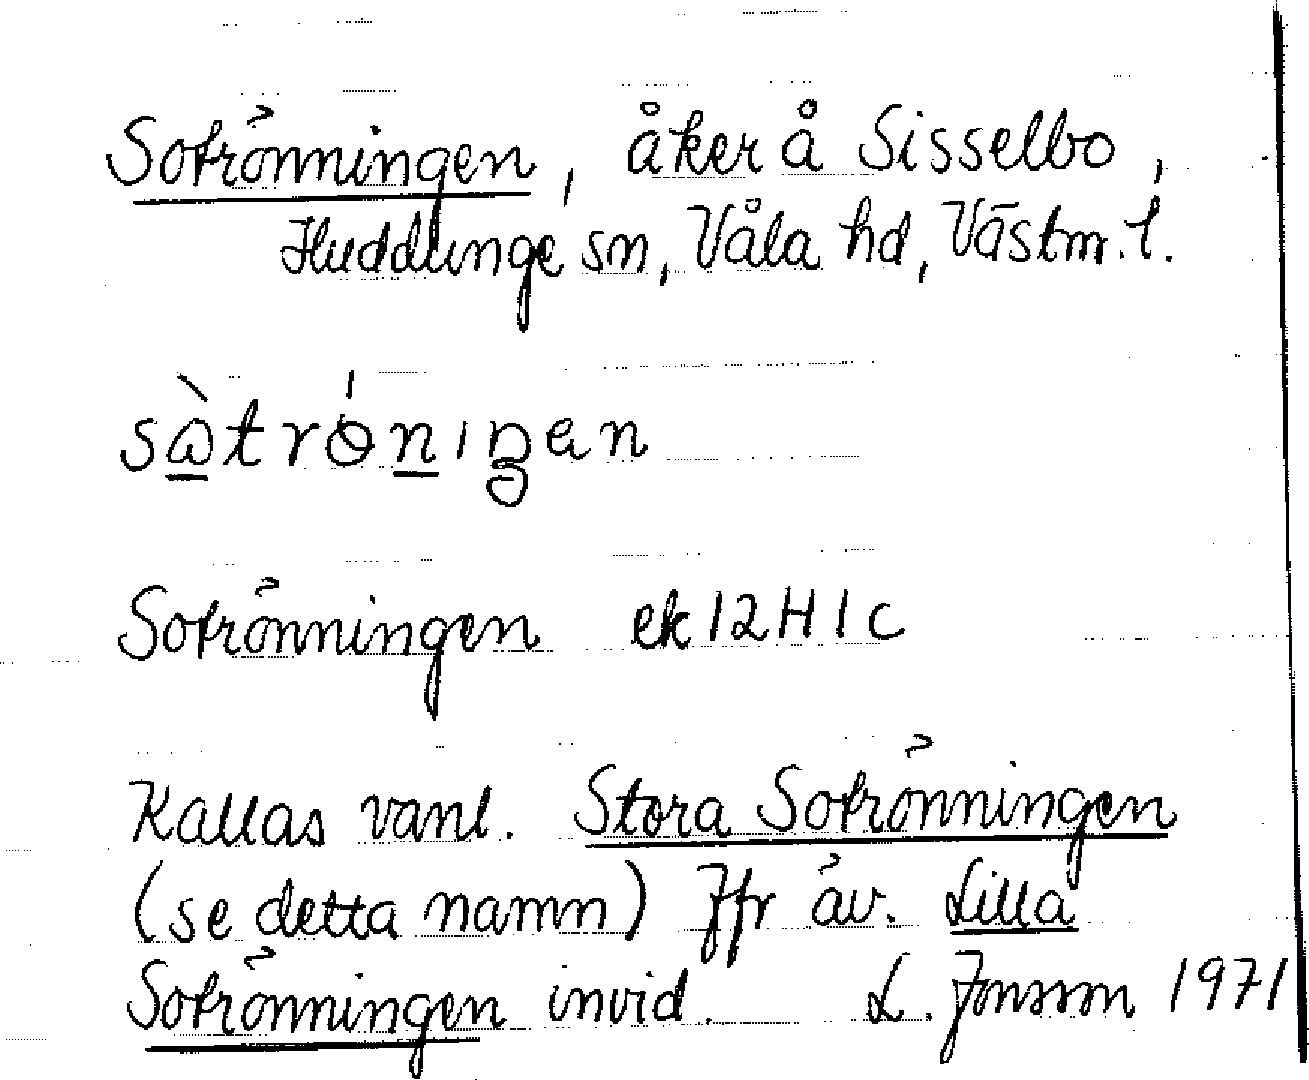 Sotrönningen, åker å Sisselbo,
Huddunge sn, Våla hd, Västm. l.
Sotrönningen ek 12H1c
Kallas vanl. Stora Sotrönningen
(se detta namn) Jfr äv. Lilla
Sotrönningen invid. L. Jonsson 1971